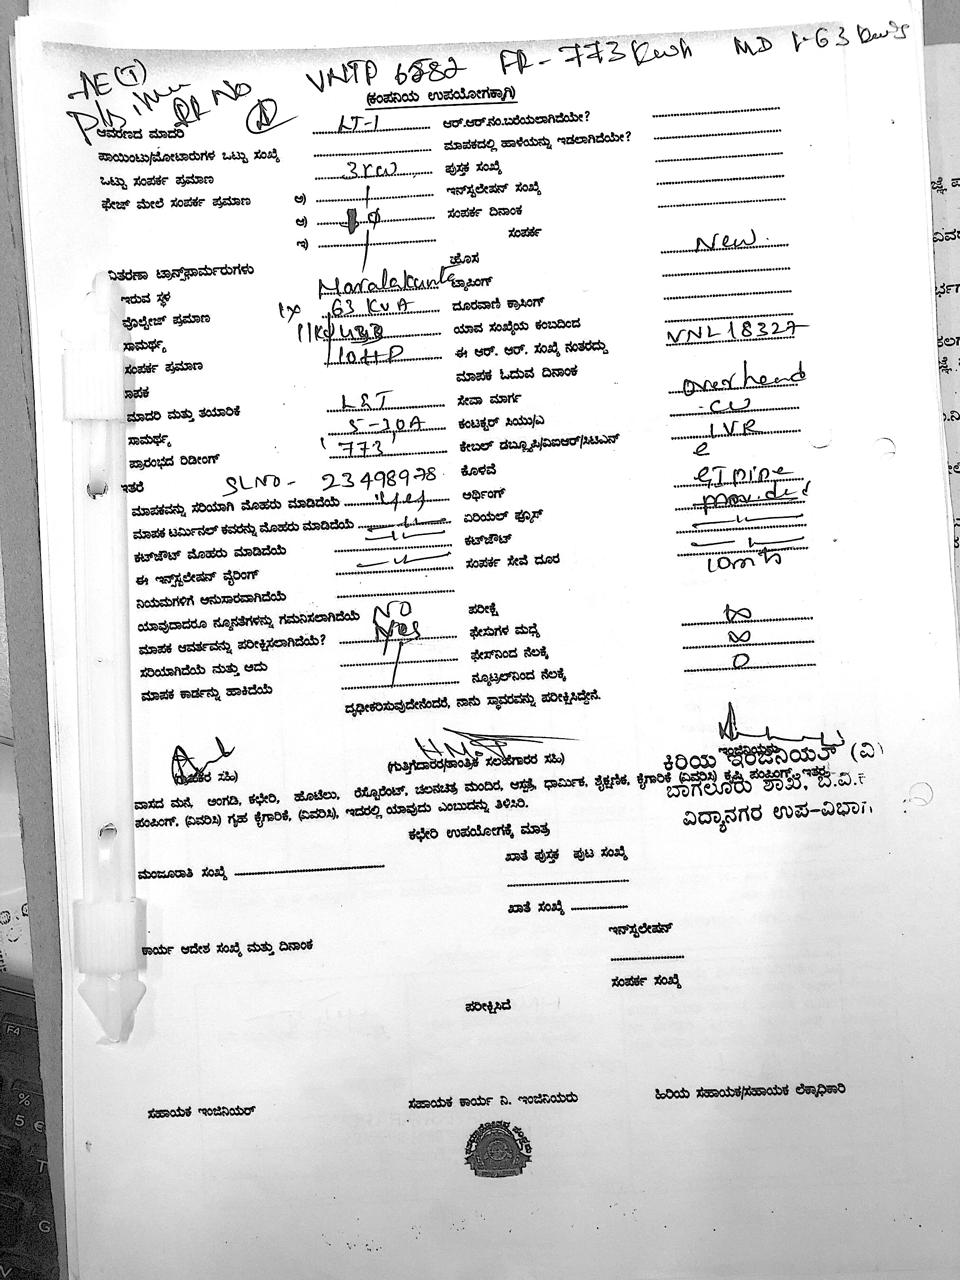 AE(T) VNTP 6582 FR - 773 kwh MD 1-63 kw's
pls issue RR NO
(ಕಂಪನಿಯ ಉಪಯೋಗಕ್ಕಾಗಿ)
ಆವರಣದ ಮಾದರಿ LT-1 ಆರ್.ಆರ್.ನಂ.ಬರೆಯಲಾಗಿದೆಯೇ?
ಪಾಯಿಂಟು/ಮೋಟಾರುಗಳ ಒಟ್ಟು ಸಂಖ್ಯೆ ಮಾಪಕದಲ್ಲಿ ಹಾಳೆಯನ್ನು ಇಡಲಾಗಿದೆಯೇ?
ಒಟ್ಟು ಸಂಪರ್ಕ ಪ್ರಮಾಣ 3KW ಪುಸ್ತಕ ಸಂಖ್ಯೆ
ಫೇಜ್ ಮೇಲೆ ಸಂಪರ್ಕ ಪ್ರಮಾಣ ಅ) ಇನ್‌ಸ್ಟಲೇಷನ್ ಸಂಖ್ಯೆ
ಆ) ಸಂಪರ್ಕ ದಿನಾಂಕ
ಇ) ಸಂಪರ್ಕ
ವಿತರಣಾ ಟ್ರಾನ್ಸ್‌ಫಾರ್ಮರುಗಳು ಹೊಸ New
ಇರುವ ಸ್ಥಳ Maralakunte ಟ್ಯಾಪಿಂಗ್
ವೋಲ್ಟೇಜ್ ಪ್ರಮಾಣ 1x 63 KVA ದೂರವಾಣಿ ಕ್ರಾಸಿಂಗ್
ಸಾಮರ್ಥ್ಯ ಯಾವ ಸಂಖ್ಯೆಯ ಕಂಬದಿಂದ
ಸಂಪರ್ಕ ಪ್ರಮಾಣ 10HP ಈ ಆರ್. ಆರ್. ಸಂಖ್ಯೆ ನಂತರದ್ದು VNL18327
ಮಾಪಕ ಮಾಪಕ ಓದುವ ದಿನಾಂಕ
ಮಾದರಿ ಮತ್ತು ತಯಾರಿಕೆ L&T ಸೇವಾ ಮಾರ್ಗ Overhead
ಸಾಮರ್ಥ್ಯ 5-30A ಕಂಟಕ್ಟರ್ ಸಿಯು/ಎ CU
ಪ್ರಾರಂಭದ ರಿಡೀಂಗ್ '773' ಕೇಬಲ್ ಡಬ್ಲ್ಯೂಪಿ/ವಿಐಆರ್/ಸಿಟಿಎಸ್ IVR
ಇತರೆ SL NO - 23498978 ಕೊಳವೆ GI pipe
ಮಾಪಕವನ್ನು ಸರಿಯಾಗಿ ಮೊಹರು ಮಾಡಿದೆಯೆ yes ಆರ್ಥಿಂಗ್ provided
ಮಾಪಕ ಟರ್ಮಿನಲ್ ಕವರನ್ನು ಮೊಹರು ಮಾಡಿದೆಯೆ —"— ಏರಿಯಲ್ ಫ್ಯೂಸ್ —"—
ಕಟ್‌ಔಟ್ ಮೊಹರು ಮಾಡಿದೆಯೆ —"— ಕಟ್‌ಔಟ್ —"—
ಈ ಇನ್‌ಸ್ಟಲೇಷನ್ ವೈರಿಂಗ್ —"— ಸಂಪರ್ಕ ಸೇವೆ ದೂರ 10mts
ನಿಯಮಗಳಿಗೆ ಅನುಸಾರವಾಗಿದೆಯೆ
ಯಾವುದಾದರೂ ನ್ಯೂನತೆಗಳನ್ನು ಗಮನಿಸಲಾಗಿದೆಯೆ NO ಪರೀಕ್ಷೆ
ಮಾಪಕ ಆವರ್ತವನ್ನು ಪರೀಕ್ಷಿಸಲಾಗಿದೆಯೆ? Yes ಫೇಸುಗಳ ಮಧ್ಯೆ ∞
ಸರಿಯಾಗಿದೆಯೆ ಮತ್ತು ಅದು ಫೇಸ್‌ನಿಂದ ನೆಲಕ್ಕೆ ∞
ಮಾಪಕ ಕಾರ್ಡನ್ನು ಹಾಕಿದೆಯೆ ನ್ಯೂಟ್ರಲ್‌ನಿಂದ ನೆಲಕ್ಕೆ 0
ದೃಢೀಕರಿಸುವುದೇನೆಂದರೆ, ನಾನು ಸ್ಥಾವರವನ್ನು ಪರೀಕ್ಷಿಸಿದ್ದೇನೆ.
(ಗ್ರಾಹಕರ ಸಹಿ) (ಗುತ್ತಿಗೆದಾರರ/ತಾಂತ್ರಿಕ ಸಲಹೆಗಾರರ ಸಹಿ) ಇಂಜಿನಿಯರು
ಕಿರಿಯ ಇಂಜಿನಿಯರ್ (ವಿ)
ಬಾಗಲೂರು ಶಾಖೆ, ಬೆ.ವಿ.
ವಿದ್ಯಾನಗರ ಉಪ-ವಿಭಾಗ
ವಾಸದ ಮನೆ, ಅಂಗಡಿ, ಕಛೇರಿ, ಹೊಟೇಲು, ರೆಸ್ಟೋರೆಂಟ್, ಚಲನಚಿತ್ರ ಮಂದಿರ, ಆಸ್ಪತ್ರೆ, ಧಾರ್ಮಿಕ, ಶೈಕ್ಷಣಿಕ, ಕೈಗಾರಿಕೆ (ವಿವರಿಸಿ) ಕೃಷಿ ಪಂಪಿಂಗ್, ಇತರ
ಪಂಪಿಂಗ್, (ವಿವರಿಸಿ) ಗೃಹ ಕೈಗಾರಿಕೆ, (ವಿವರಿಸಿ), ಇದರಲ್ಲಿ ಯಾವುದು ಎಂಬುದನ್ನು ತಿಳಿಸಿರಿ.
ಕಛೇರಿ ಉಪಯೋಗಕ್ಕೆ ಮಾತ್ರ
ಮಂಜೂರಾತಿ ಸಂಖ್ಯೆ ಖಾತೆ ಪುಸ್ತಕ ಪುಟ ಸಂಖ್ಯೆ
ಖಾತೆ ಸಂಖ್ಯೆ
ಇನ್‌ಸ್ಟಲೇಷನ್
ಕಾರ್ಯ ಆದೇಶ ಸಂಖ್ಯೆ ಮತ್ತು ದಿನಾಂಕ
ಸಂಪರ್ಕ ಸಂಖ್ಯೆ
ಪರೀಕ್ಷಿಸಿದೆ
ಸಹಾಯಕ ಇಂಜಿನಿಯರ್ ಸಹಾಯಕ ಕಾರ್ಯ ನಿ. ಇಂಜಿನಿಯರು ಹಿರಿಯ ಸಹಾಯಕ/ಸಹಾಯಕ ಲೆಕ್ಕಾಧಿಕಾರಿ